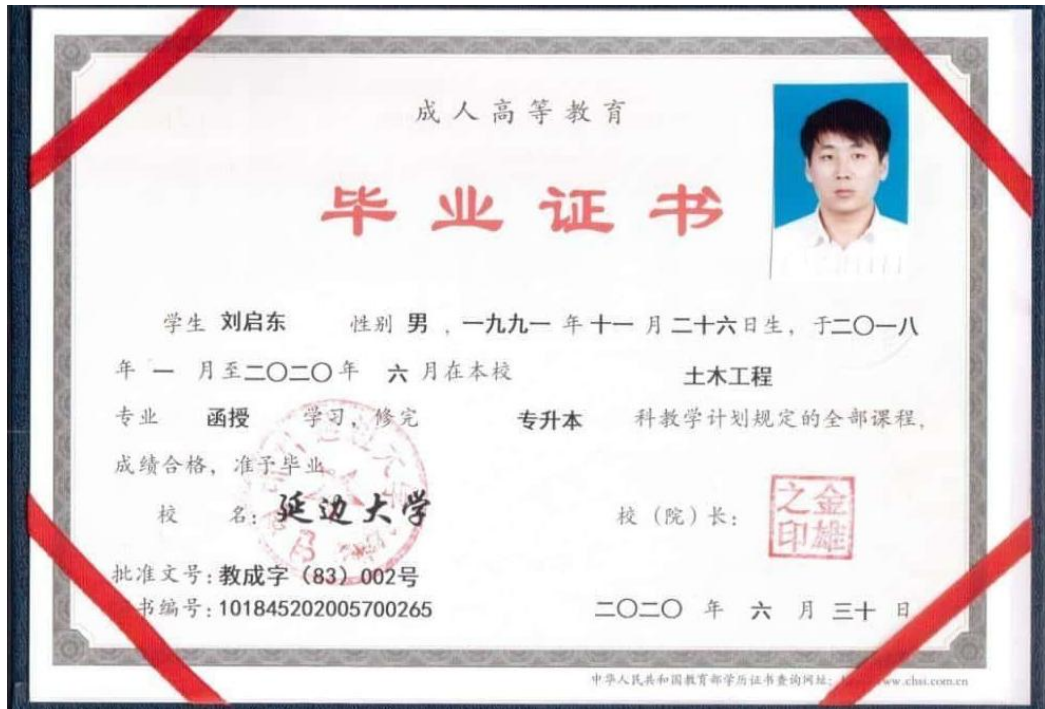 成人高等教育
毕业证书
学生 刘启东 性别 男 ，一九九一 年 十一 月 二十六 日生，于二〇一八
年 一 月至二〇二〇年 六 月在本校 土木工程
专业 函授 学习，修完 专升本 科教学计划规定的全部课程，
成绩合格，准予毕业
校 名：延边大学 校（院）长：金雄之印
批准文号：教成字（83）002号
书编号：101845202005700265 二〇二〇 年 六 月 三十 日
中华人民共和国教育部学历证书查询网址： www.chsi.com.cn